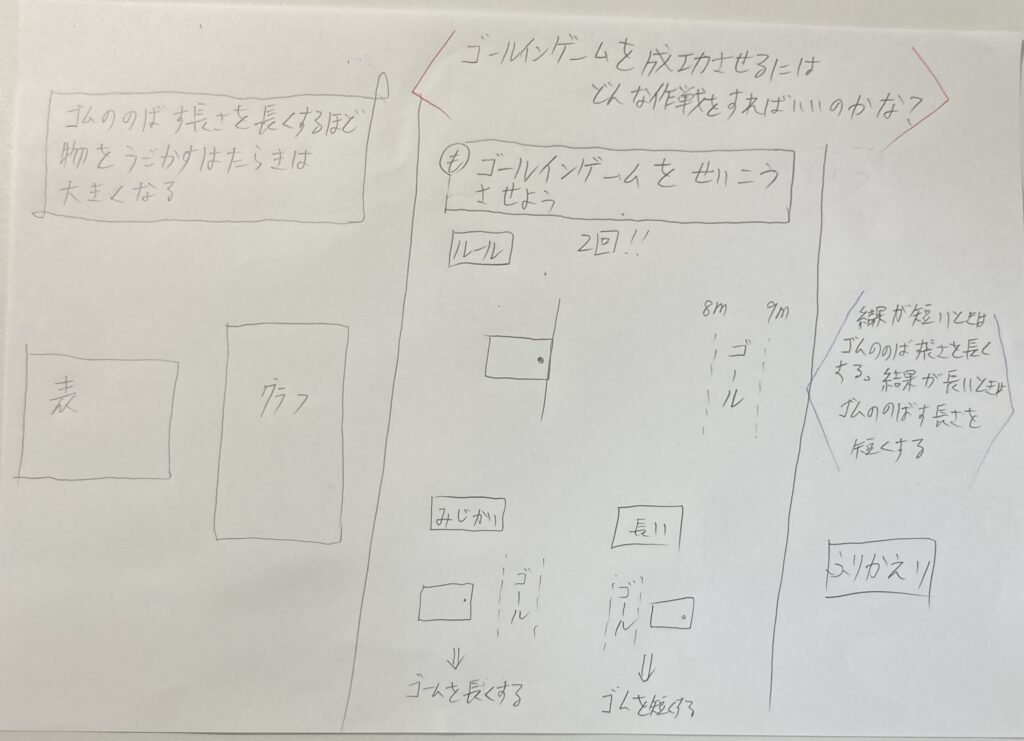 ゴムののばす長さを長くするほど
物をうごかすはたらきは
大きくなる
表
グラフ
ゴールインゲームを成功させるには
どんな作戦をすればいいのかな?
も ゴールインゲームを せいこう
させよう
ルール
2回!!
8m 9m
ゴール
みじかい
ゴール
⇓
ゴームを長くする
長い
ゴール
⇓
ゴムを短くする
結果が短いときは
ゴムののばす長さを長く
する。結果が長いときは
ゴムののばす長さを
短くする
ふりかえり